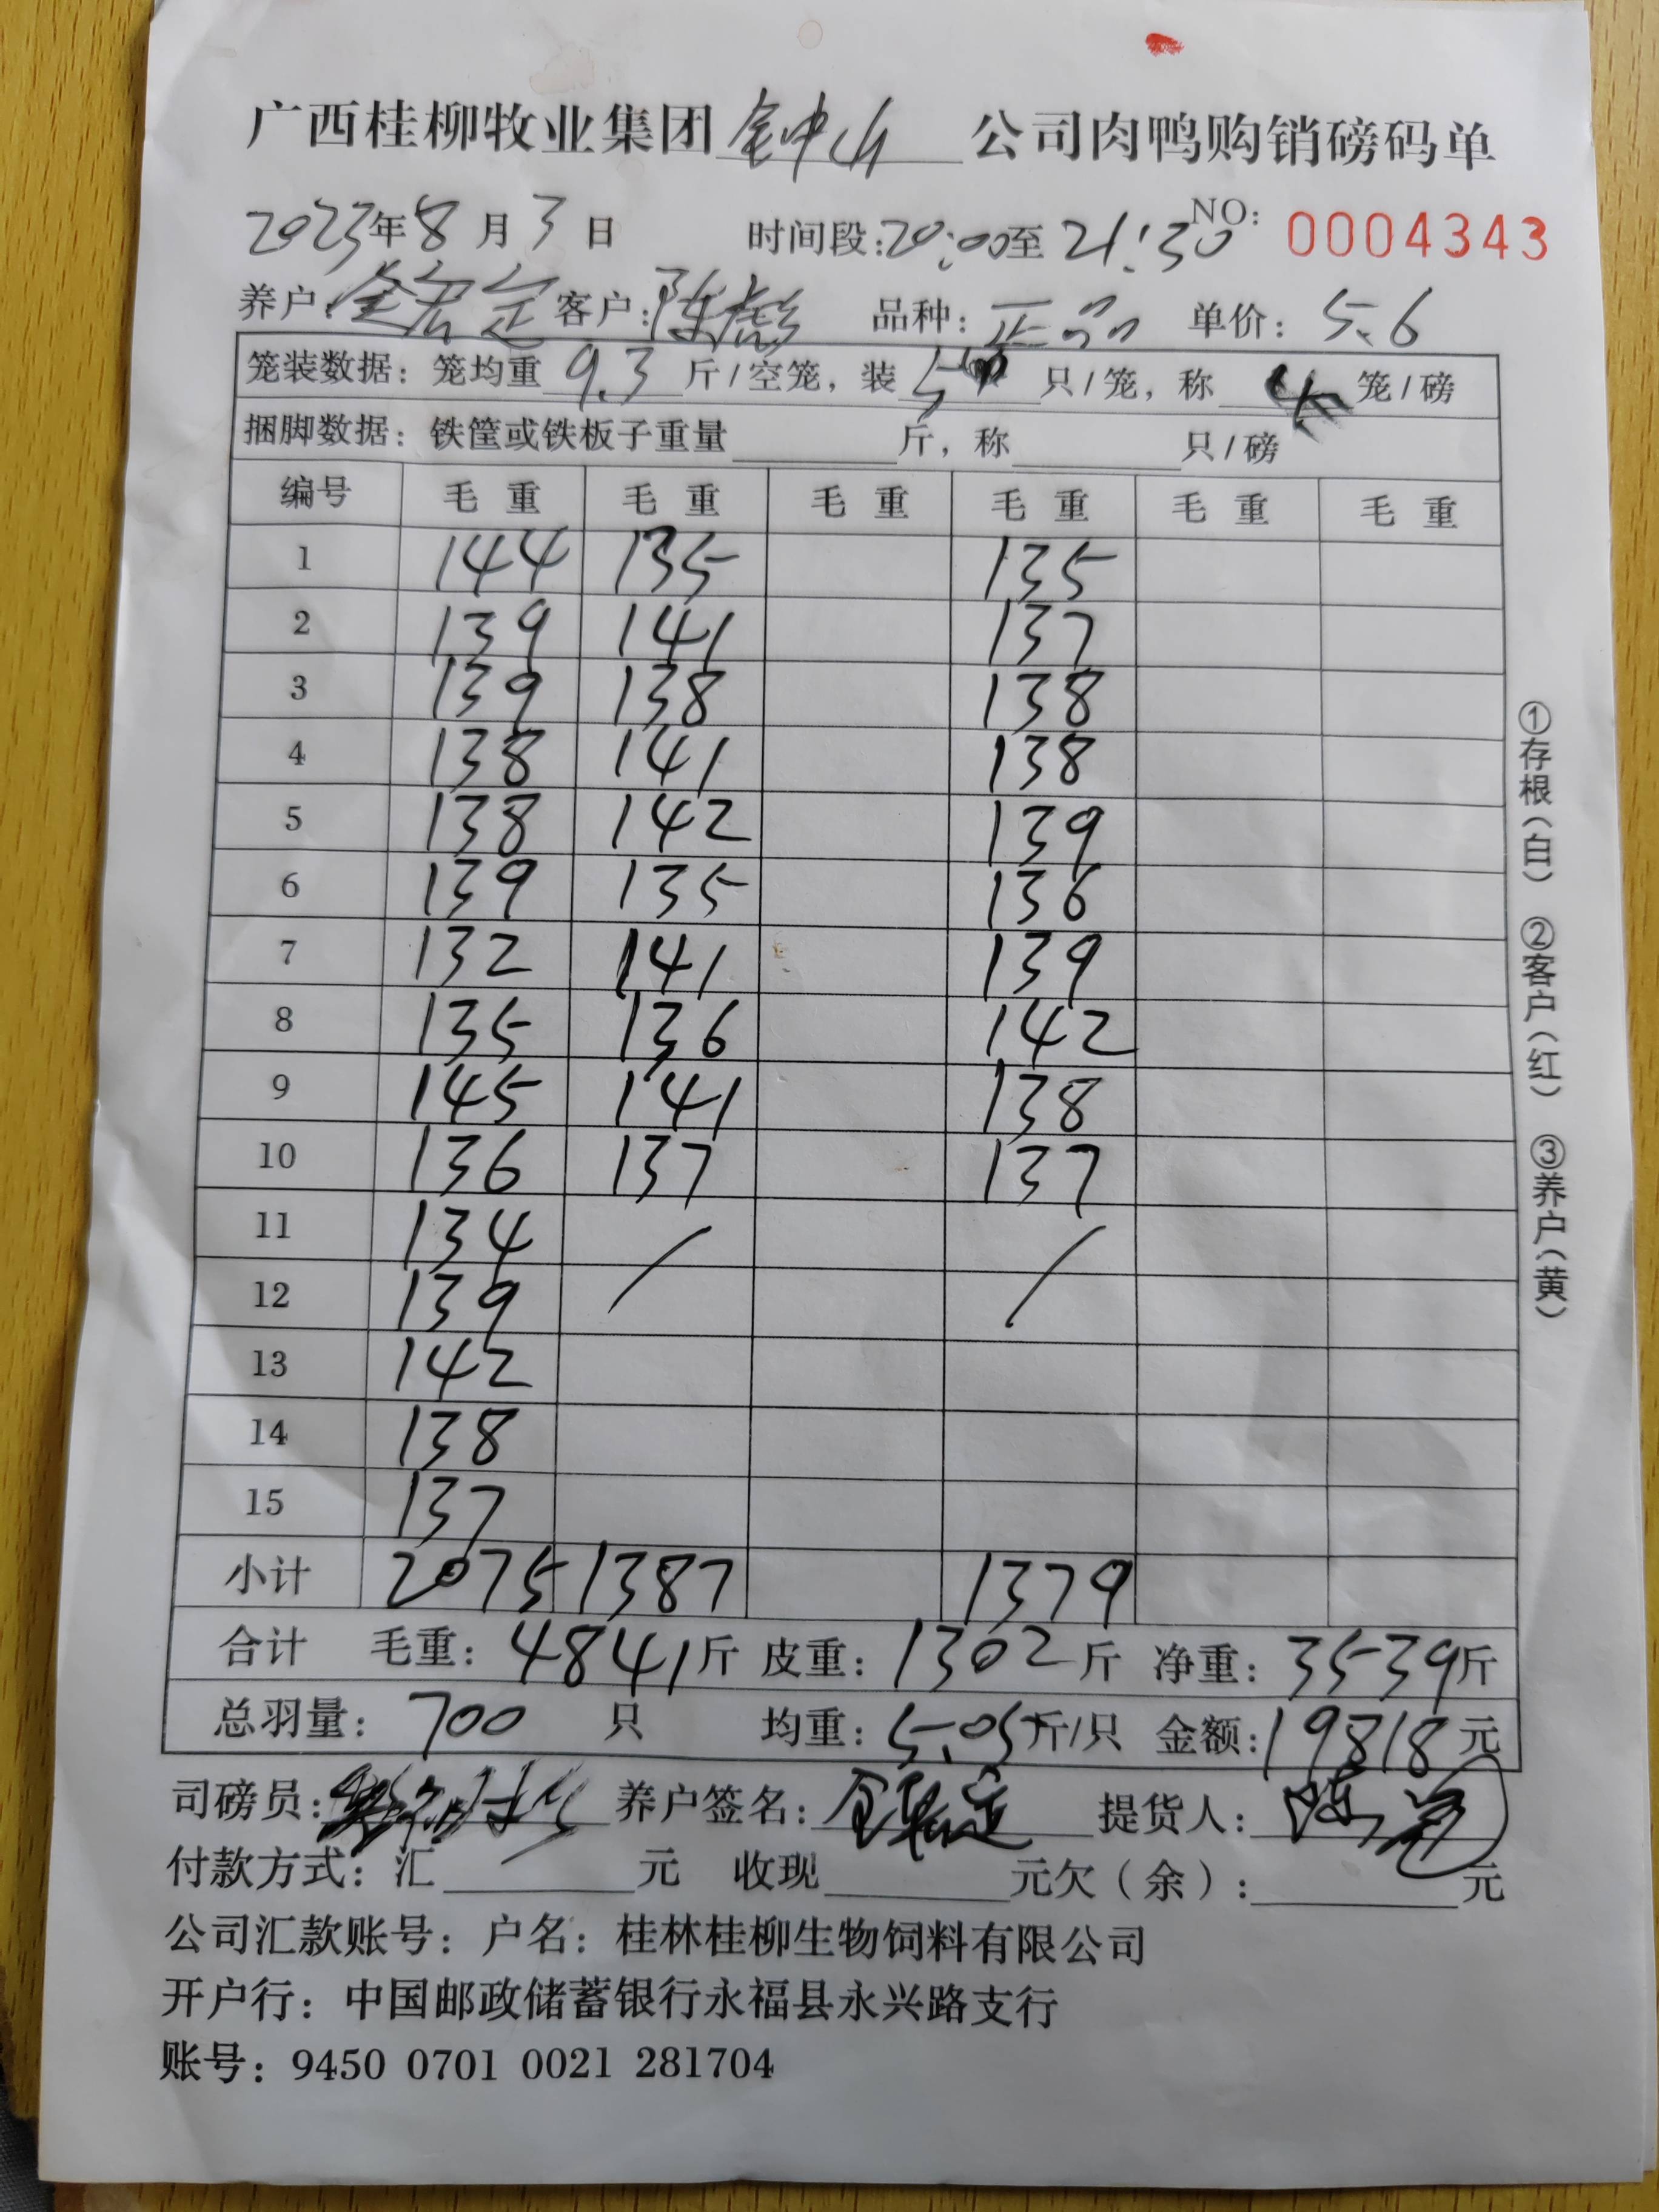 广西桂柳牧业集团 钟山 公司肉鸭购销磅码单
2023年8月3日 时间段:20:00至21:30 NO: 0004343
养户 客户:陈彪 品种:正品 单价:5.6
笼装数据:笼均重 9.3 斤/空笼,装 5 只/笼,称 4 笼/磅
捆脚数据:铁筐或铁板子重量 斤,称 只/磅
编号 毛重 毛重 毛重 毛重 毛重 毛重
1 144 135 135
2 139 141 137
3 139 138 138
4 138 141 138
5 138 142 139
6 139 135 136
7 132 141 139
8 135 136 142
9 145 141 138
10 136 137 137
11 134 / /
12 139
13 142
14 138
15 137
小计 2075 1387 1379
合计 毛重:4841斤 皮重:1302斤 净重:3539斤
总羽量:700 只 均重:5.05斤/只 金额:19818元
司磅员: 养户签名: 提货人:
付款方式:汇 元 收现 元欠(余): 元
公司汇款账号:户名:桂林桂柳生物饲料有限公司
开户行:中国邮政储蓄银行永福县永兴路支行
账号:9450 0701 0021 281704
①存根(白) ②客户(红) ③养户(黄)